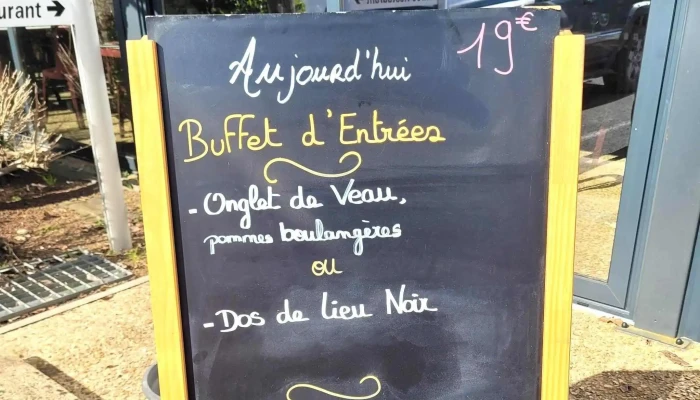 urant
19€
Aujourd'hui
Buffet d'Entrées
- Onglet de Veau,
pommes boulangères
ou
- Dos de Lieu Noir